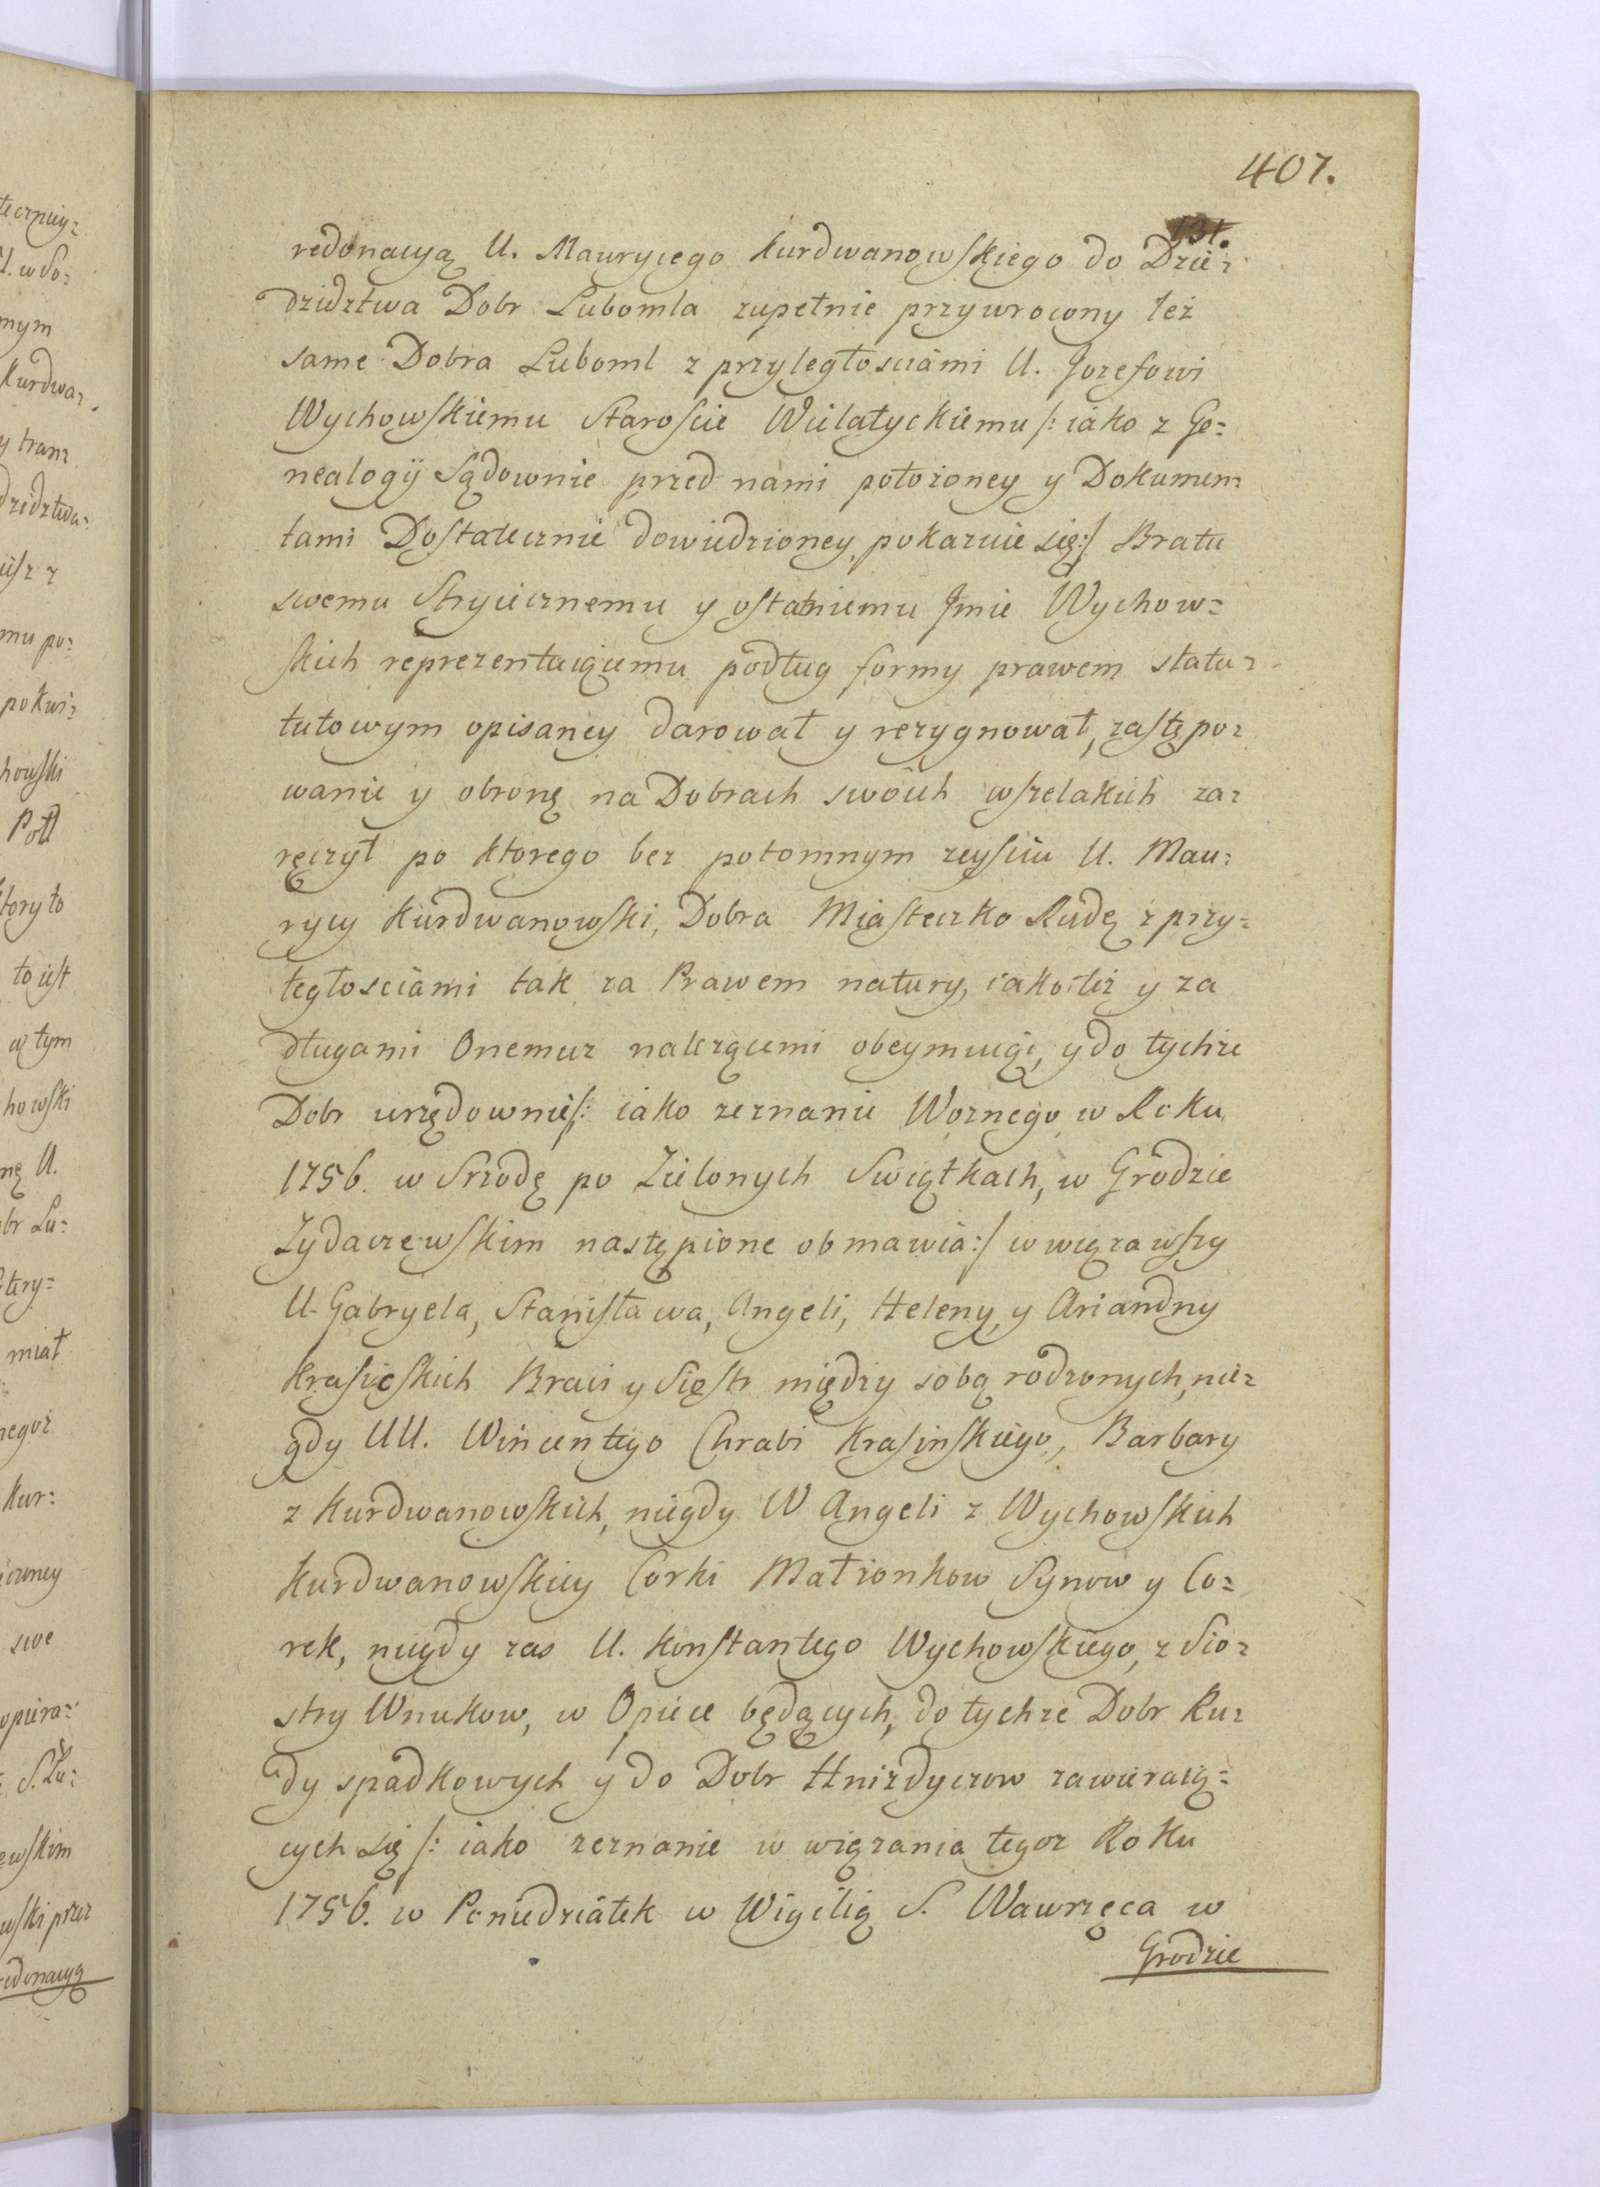 407.
131.
redonacyą U. Maurycego Kurdwanowskiego do Dzie=
dzidztwa Dobr Lubomla zupełnie przywrocony też
same Dobra Luboml z przyległosciami U. Jozefowi
Wychowskiemu Staroscie Wielatyckiemu /: iako z Ge=
nealogij Sądownie przed nami położoney y Dokumen=
tami Dostatecznie dowiedzioney, pokazuie się :/ Bratu
swemu Stryiecznemu y ostatniemu Jmie Wychow=
skich reprezentuiącemu podług formy prawem statu=
tutowym opisaney darował y rezygnował, zastępo=
wanie y obronę na Dobrach swoich wszelakich za=
ręczył po ktorego bez potomnym zeysciu U. Mau=
rycy Kurdwanowski, Dobra Miasteczko Rudę z przy=
ległosciami tak za Prawem natury, iako też y za
długami Onemuz należącemi obeymuiąc, y do tychże
Dobr urzędownie /: iako zeznanie Woznego w Roku
1756. w Srzodę po Zielonych Swiątkach, w Grodzie
Zydaczewskim nastąpione obmawia :/ wwiązawszy
U. Gabryela, Stanisława, Angeli, Heleny, y Ariandny
Krasickich Braci y Siestr między sobą rodzonych, nie=
gdy UU. Wincentego Chrabi Krasinskiego, Barbary
z Kurdwanowskich, niegdy W Angeli z Wychowskich
Kurdwanowskiey Corki Małżonkow Synow y Co=
rek, niegdy zas U. Konstantego Wychowskiego, z Sio=
stry Wnukow, w Opiece będących, do tychże Dobr Ru=
dy spadkowych y do Dobr Hnizdyczow zawieraią=
cych się /: iako zeznanie w wiązania tegoz Roku
1756. w Poniedziałek w Wigilią S. Wawrzęca w
Grodzie